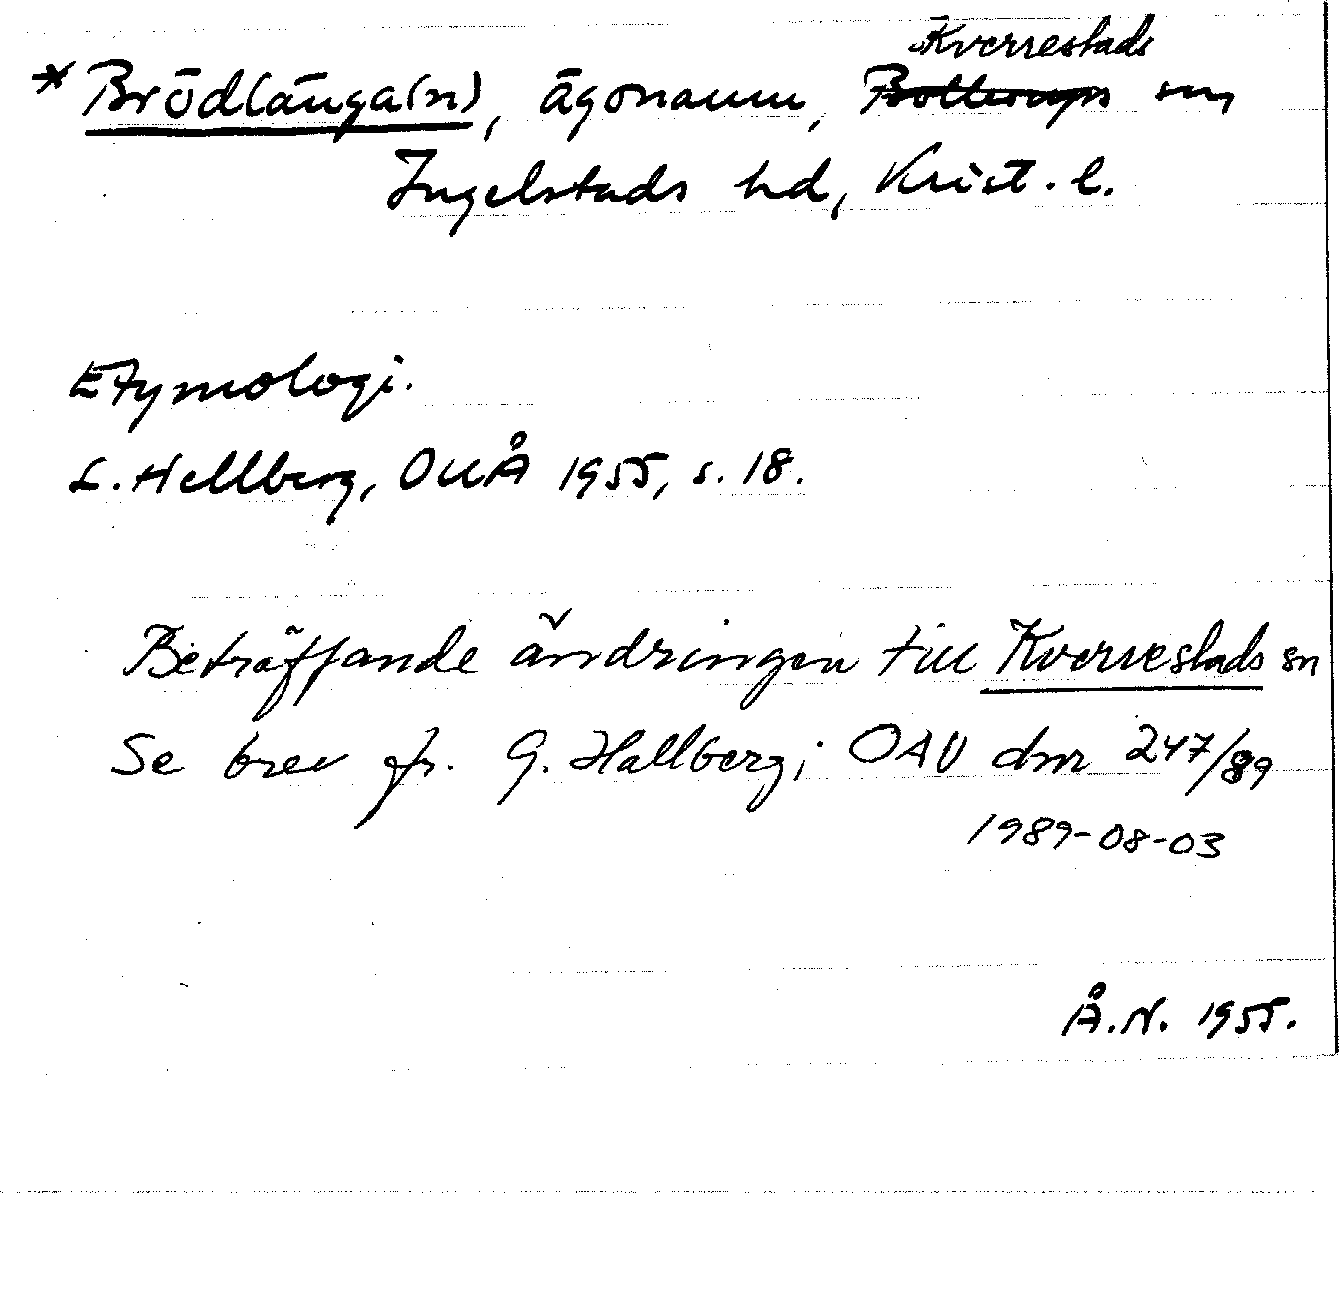 Kverrestads
* Brödlänga(n), ägonamn, Bollerups sn,
Ingelstads hd, Krist. l.
Etymologi.
L. Hellberg, OUÅ 1955, s. 18.
Beträffande ändringen till Kverrestads sn
Se brev fr. G. Hallberg; OAU dnr 247/89
1989-08-03
Å.N. 1955.